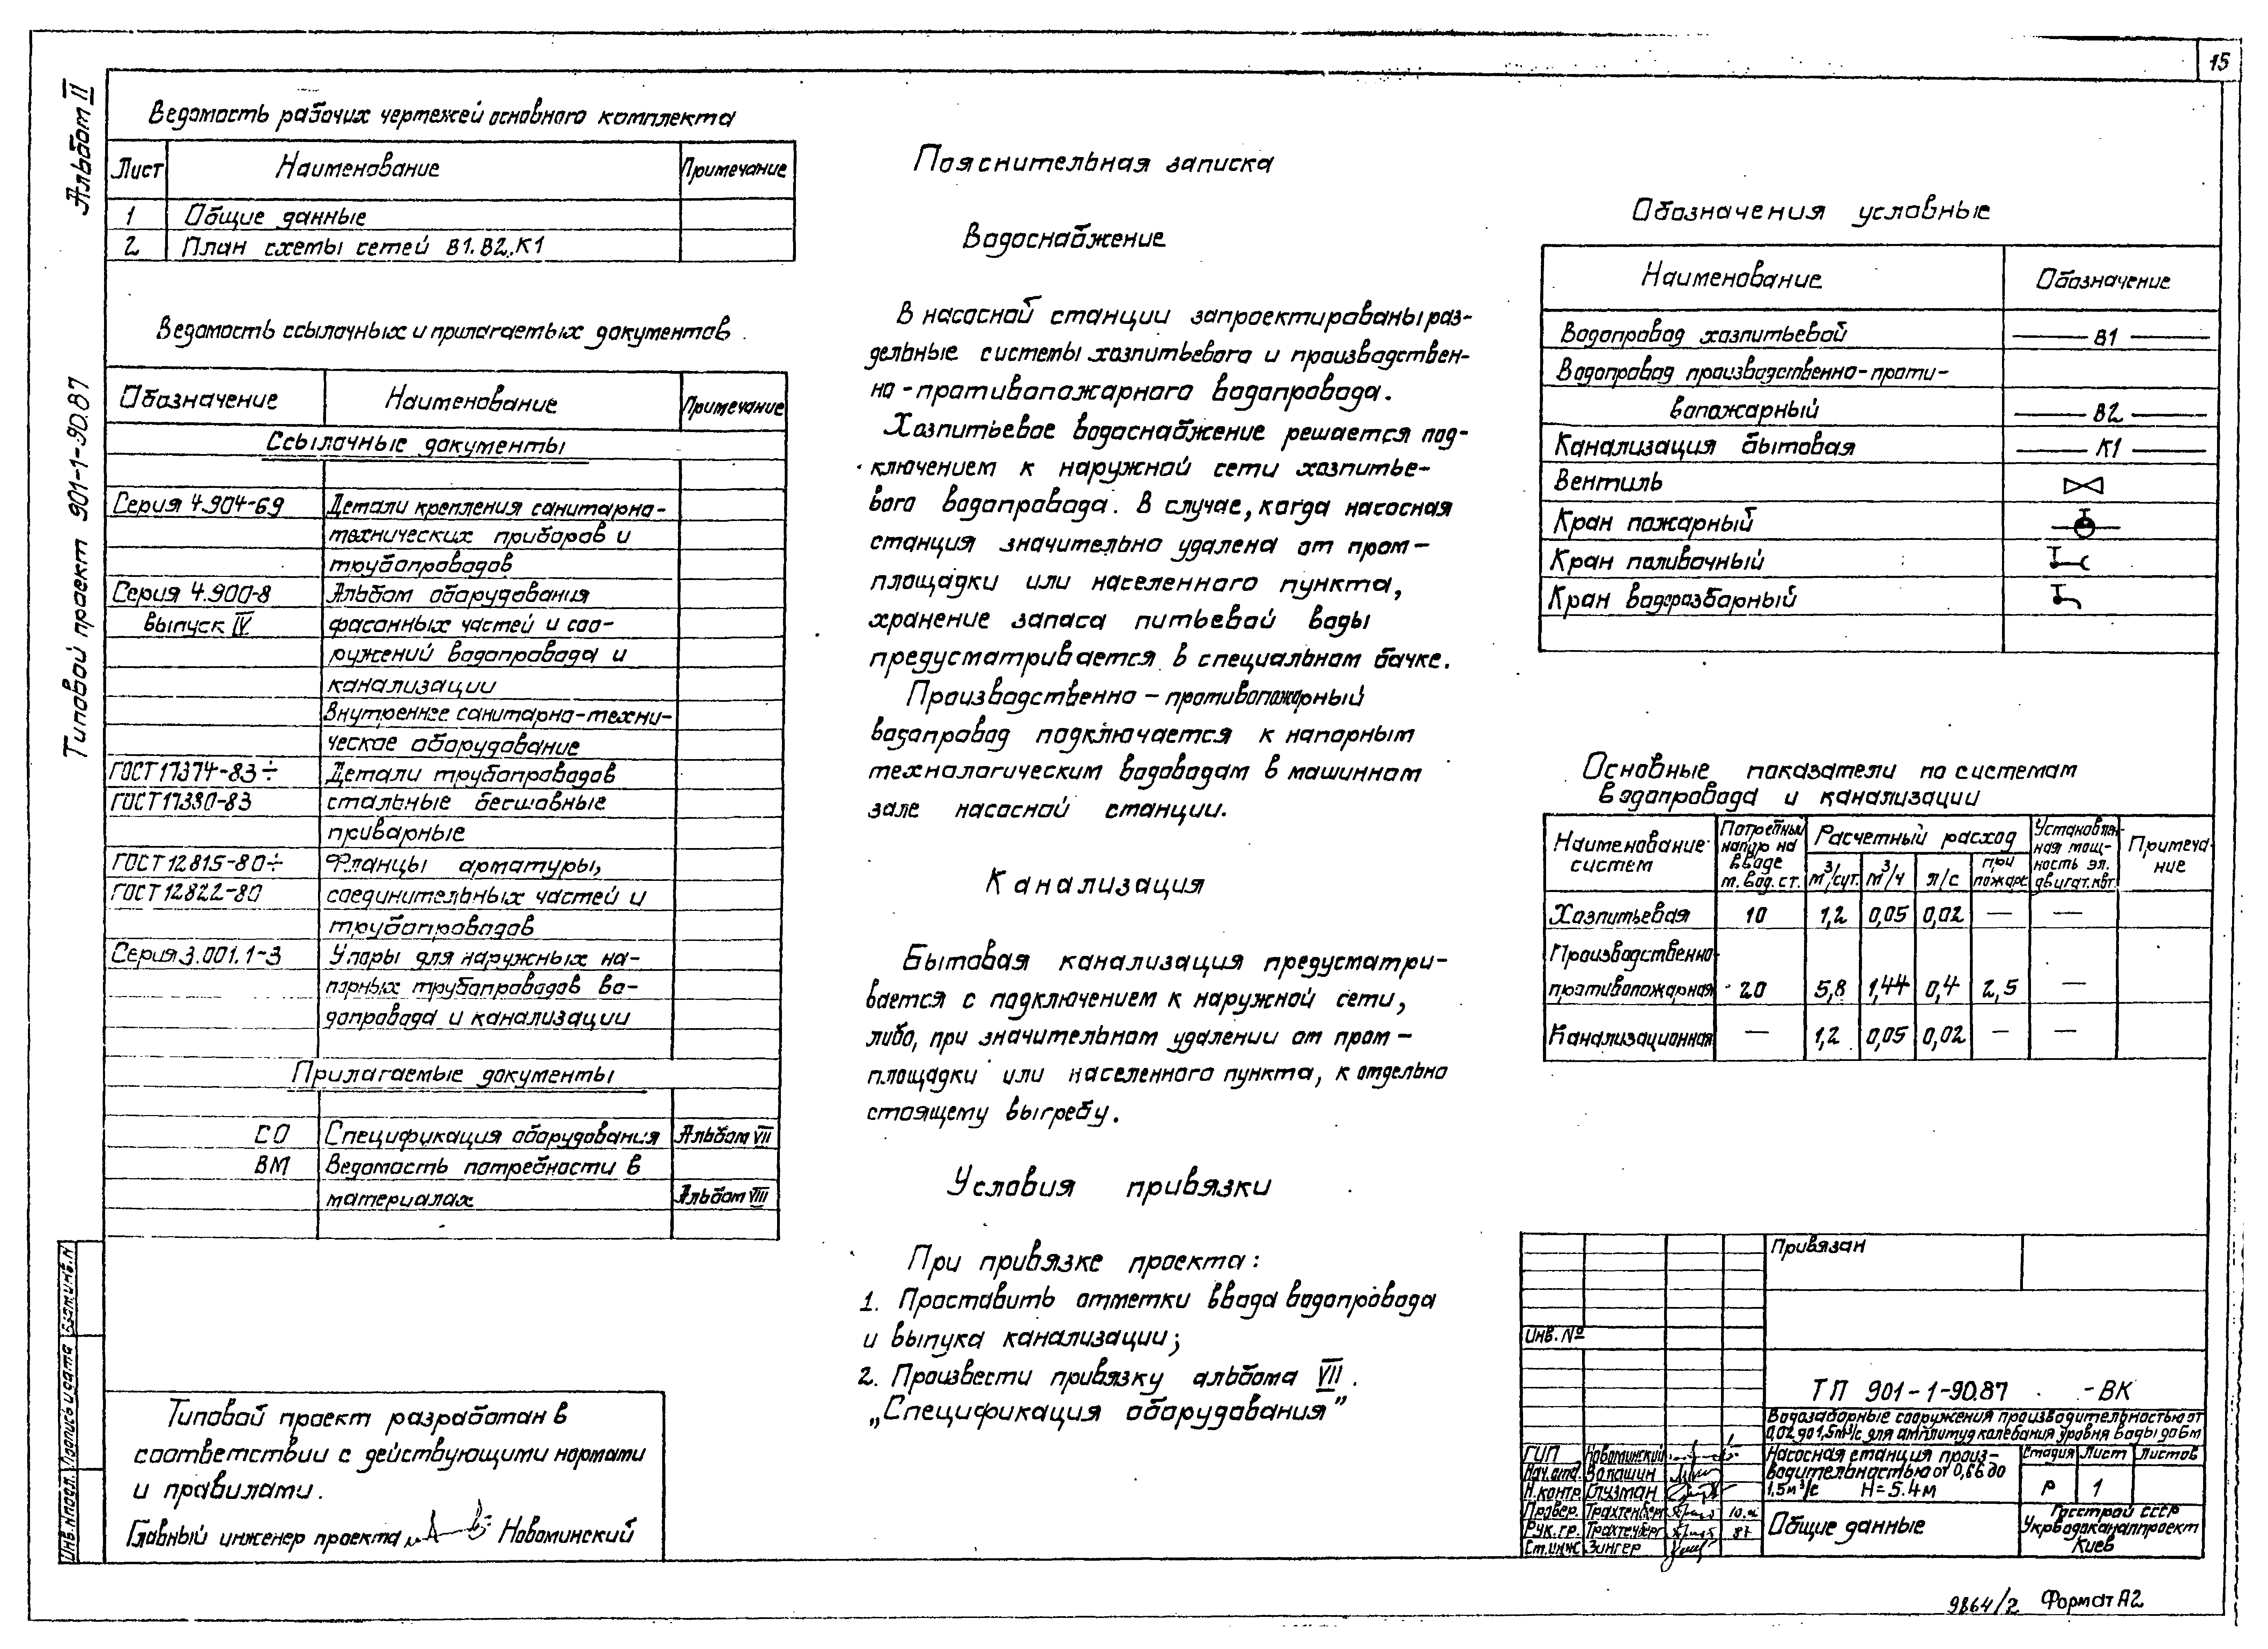 15
Альбом II
Типовой проект 901-1-90.87
Ведомость рабочих чертежей основного комплекта
Лист Наименование Примечание
1 Общие данные
2 План схемы сетей В1.В2.К1
Ведомость ссылочных и прилагаемых документов
Обозначение Наименование Примечание
Ссылочные документы
Серия 4.904-69 Детали крепления санитарно-
технических приборов и
трубопроводов
Серия 4.900-8 Альбом оборудования
выпуск IV фасонных частей и соо-
ружений водопровода и
канализации
Внутреннее санитарно-техни-
ческое оборудование
ГОСТ 17374-83÷ Детали трубопроводов
ГОСТ 17380-83 стальные бесшовные
приварные
ГОСТ 12815-80÷ Фланцы арматуры,
ГОСТ 12822-80 соединительных частей и
трубопроводов
Серия 3.001.1-3 Упоры для наружных на-
порных трубопроводов во-
допровода и канализации
Прилагаемые документы
СО Спецификация оборудования Альбом VII
ВМ Ведомость потребности в
материалах Альбом VIII
Типовой проект разработан в
соответствии с действующими нормами
и правилами.
Главный инженер проекта Новоминский
Инв.№подл. Подпись и дата Взам.инв.N
Пояснительная записка
Водоснабжение
В насосной станции запроектированы раз-
дельные системы хозпитьевого и производствен-
но-противопожарного водопровода.
Хозпитьевое водоснабжение решается под-
ключением к наружной сети хозпитье-
вого водопровода. В случае, когда насосная
станция значительно удалена от пром-
площадки или населенного пункта,
хранение запаса питьевой воды
предусматривается в специальном бачке.
Производственно-противопожарный
водопровод подключается к напорным
технологическим водоводам в машинном
зале насосной станции.
Канализация
Бытовая канализация предусматри-
вается с подключением к наружной сети,
либо, при значительном удалении от пром-
площадки или населенного пункта, к отдельно
стоящему выгребу.
Условия привязки
При привязке проекта:
1. Проставить отметки ввода водопровода
и выпука канализации;
2. Произвести привязку альбома VII.
„Спецификация оборудования"
Обозначения условные
Наименование Обозначение
Водопровод хозпитьевой В1
Водопровод производственно-проти-
вопожарный В2
Канализация бытовая К1
Вентиль
Кран пожарный
Кран поливочный
Кран водоразборный
Основные показатели по системам
водопровода и канализации
Наименование систем Потребный напор на вводе м.вод.ст. Расчетный расход Установлен-ная мощ-ность эл. двигат. квт Примеча-ние
м³/сут. м³/ч л/с при пожаре
Хозпитьевая 10 1,2 0,05 0,02 — —
Производственно-
противопожарная 20 5,8 1,44 0,4 2,5 —
Канализационная — 1,2 0,05 0,02 — —
Привязан
Инв. №
ТП 901-1-90.87 -ВК
Водозаборные сооружения производительностью от
0,02 до 1,5м³/с для амплитуд колебания уровня воды до 6м
ГИП Новоминский
Нач.отд. Волошин
Н.контр. Глузман
Провер. Трахтенберг
Рук.гр. Трахтенберг 87
Ст.инж Зингер
Насосная станция произ-
водительностью от 0,66 до
1,5м³/с Н=5.4м
Стадия Лист Листов
Р 1
Общие данные
Госстрой СССР
Укрводоканалпроект
Киев
9864/2 Формат А2